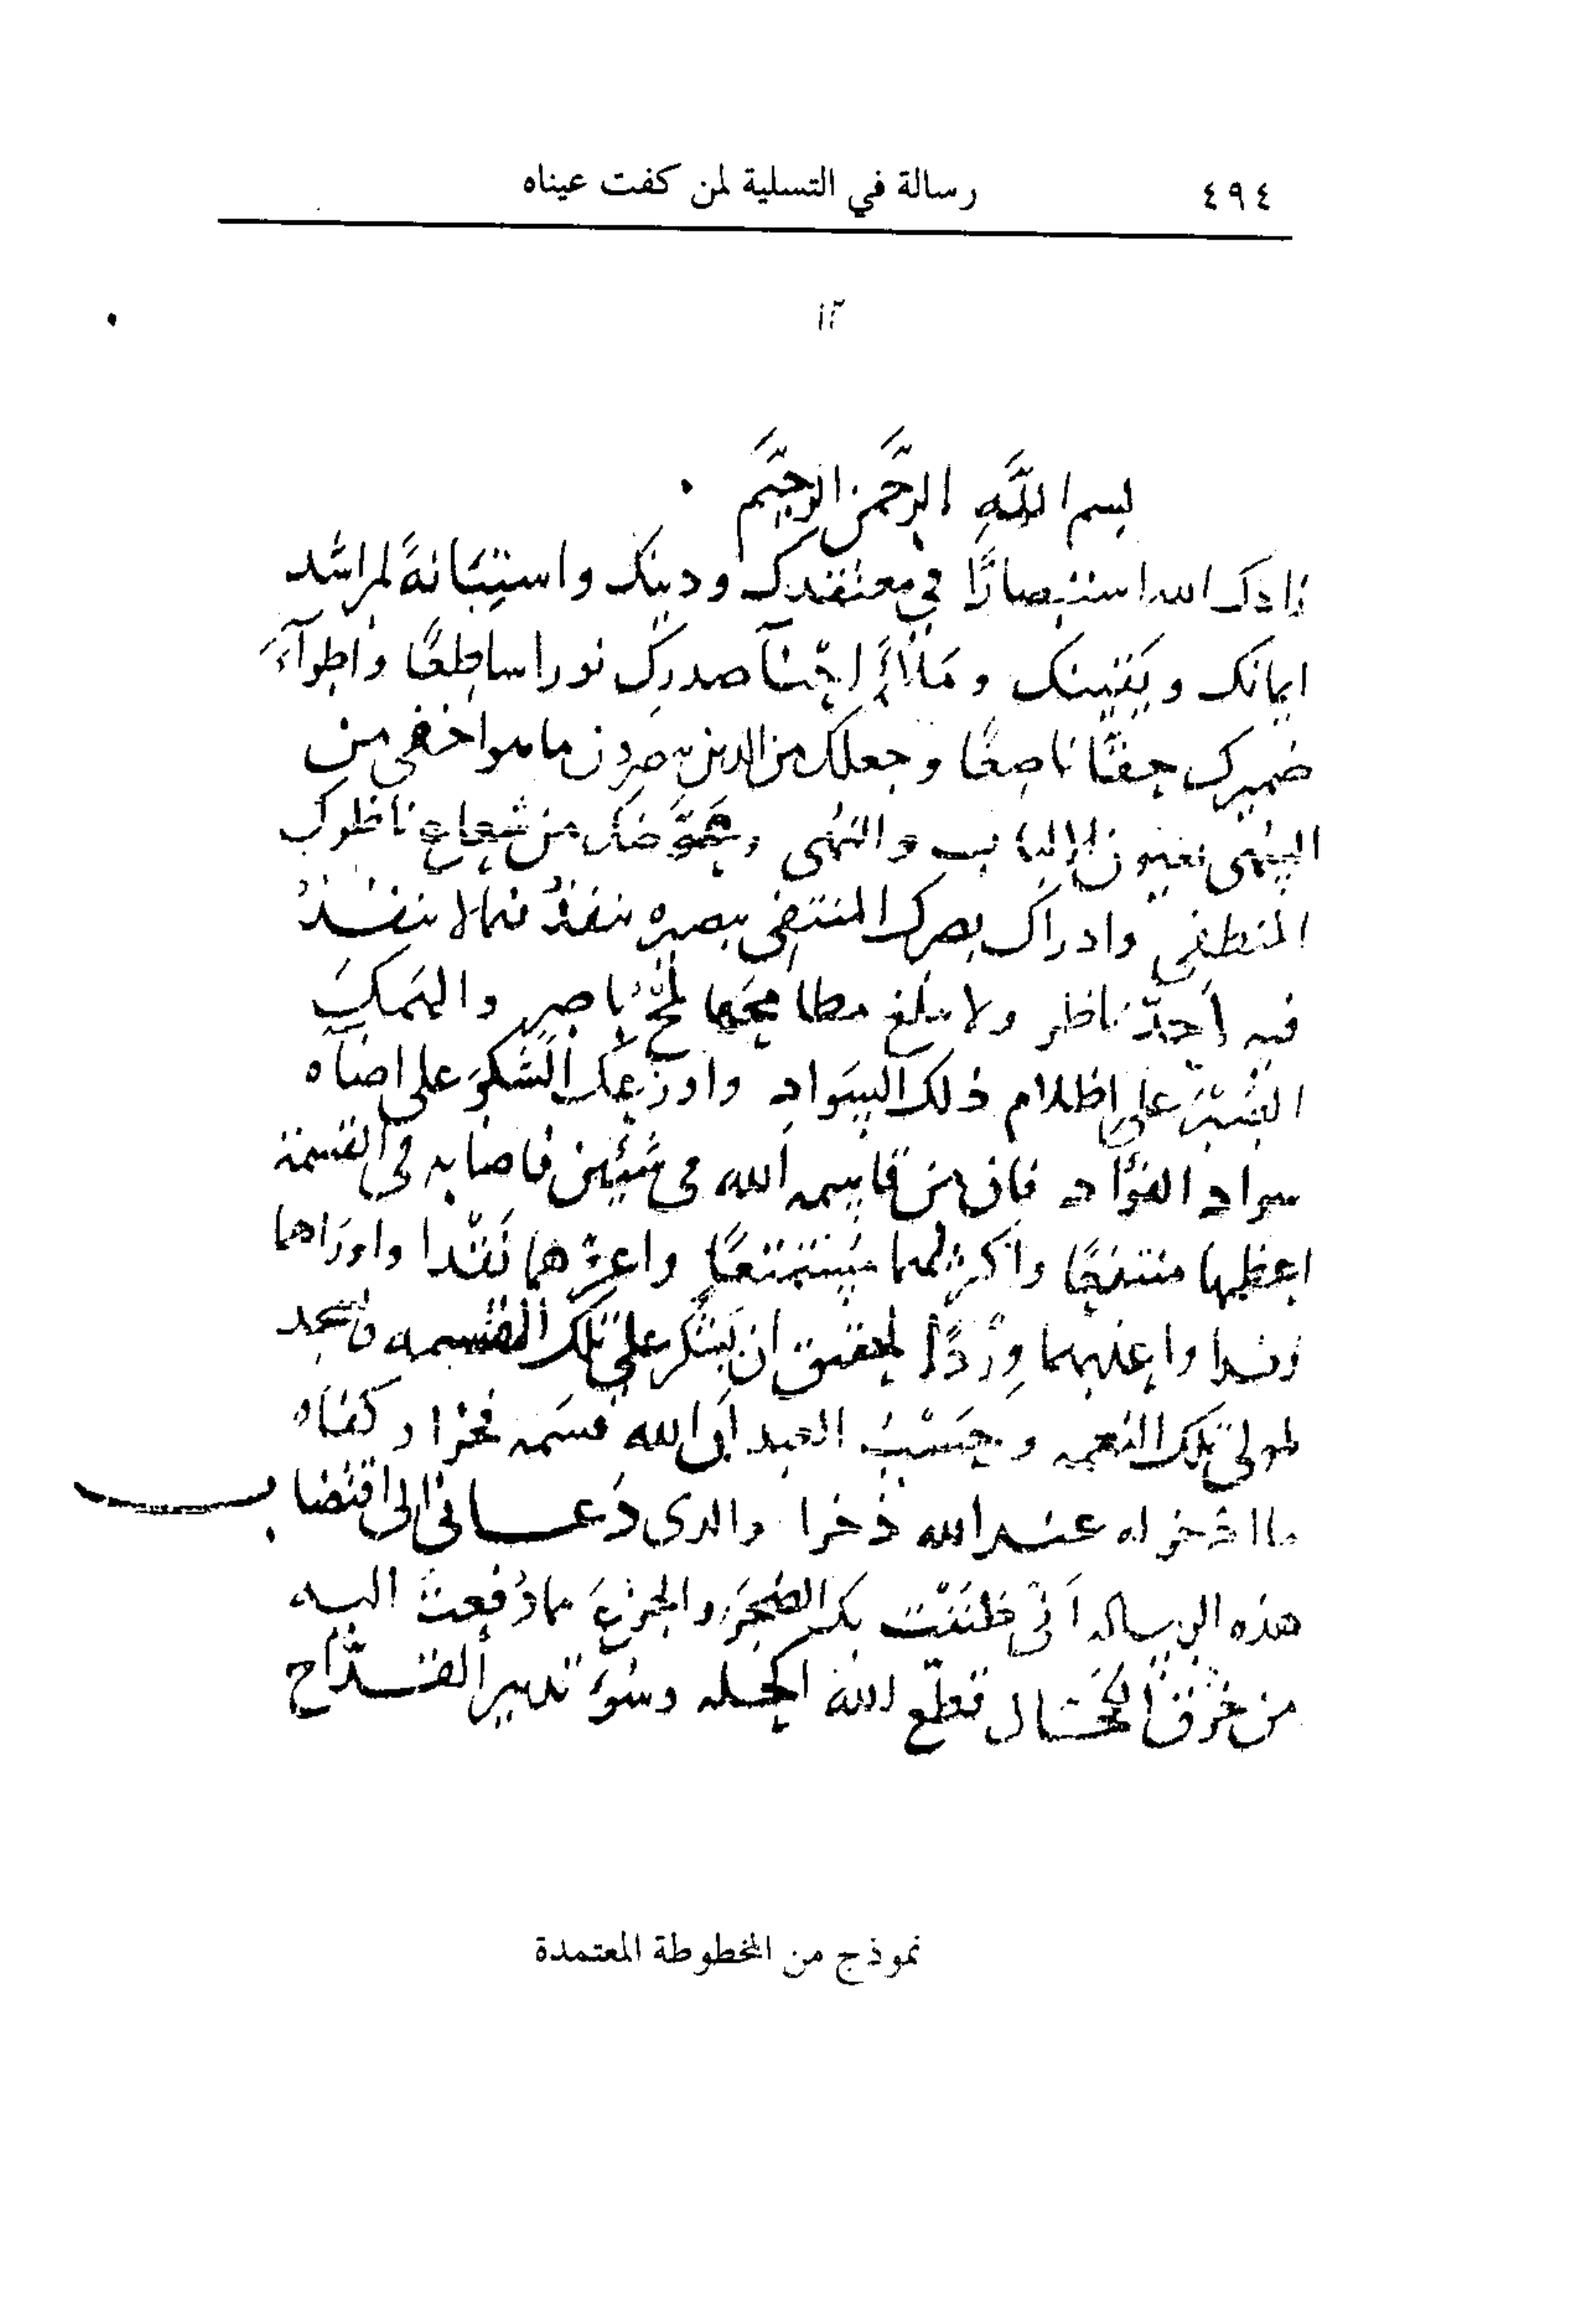 ٤٩٤
رسالة في التسلية لمن كفت عيناه
١٢
بسم اللَّهِ الرَّحمن الرحيَّم
زادك الله استبصارًا في معتقدك ودينك واستِبَانةً لمراشد
ايمانك ويَقينك ومَلأَ احْنآ صدرك نورا ساطعًا واطوآءَ
ضميرك حِقًّا ناصعًا وجعلك من الذين يبصرون ما هو اخفى من
السُّهى بعيون الالباب والنُهى وعَوَّضك من شعاع ناظرك
المنطفى وادراك بصرك المنتفى بصيره تنفذُ فيما لا ينفــذُ
فيه أحدّ ناظر ولا يبلغ مطامحَها لمْحُ باصر والهَمكَ
الصَّبْرَ على اظلام ذلك السَوادِ واوزعك الشكرَ على اضآه
سواد الفؤاد فان من قاسمه الله فى شيئين فاصابه فى القسمة
اعظمهما منتفعًا واكرمهما مُستمتعًا واعزّهما نَقْدا واوراهما
زندا واعذبهما وِرْدًا لحقيق ان يشكر على تلك القسمه فاسجد
لمولى تلك النعمه وحَسْبُ العبد ان الله قسَمه فخرا وكفاه
ما اذخر له عند الله ذخرا والذى دَعــانى الى اقتضاب
هذه الرساله أنى ظنَنْت بك الضجَرَ والجزَعَ مما دُفعتَ اليه
من خُرْقِ الكَحَّال قطع الله اكحله وسُوءِ تدبير القــدَّاح
نموذج من المخطوطة المعتمدة